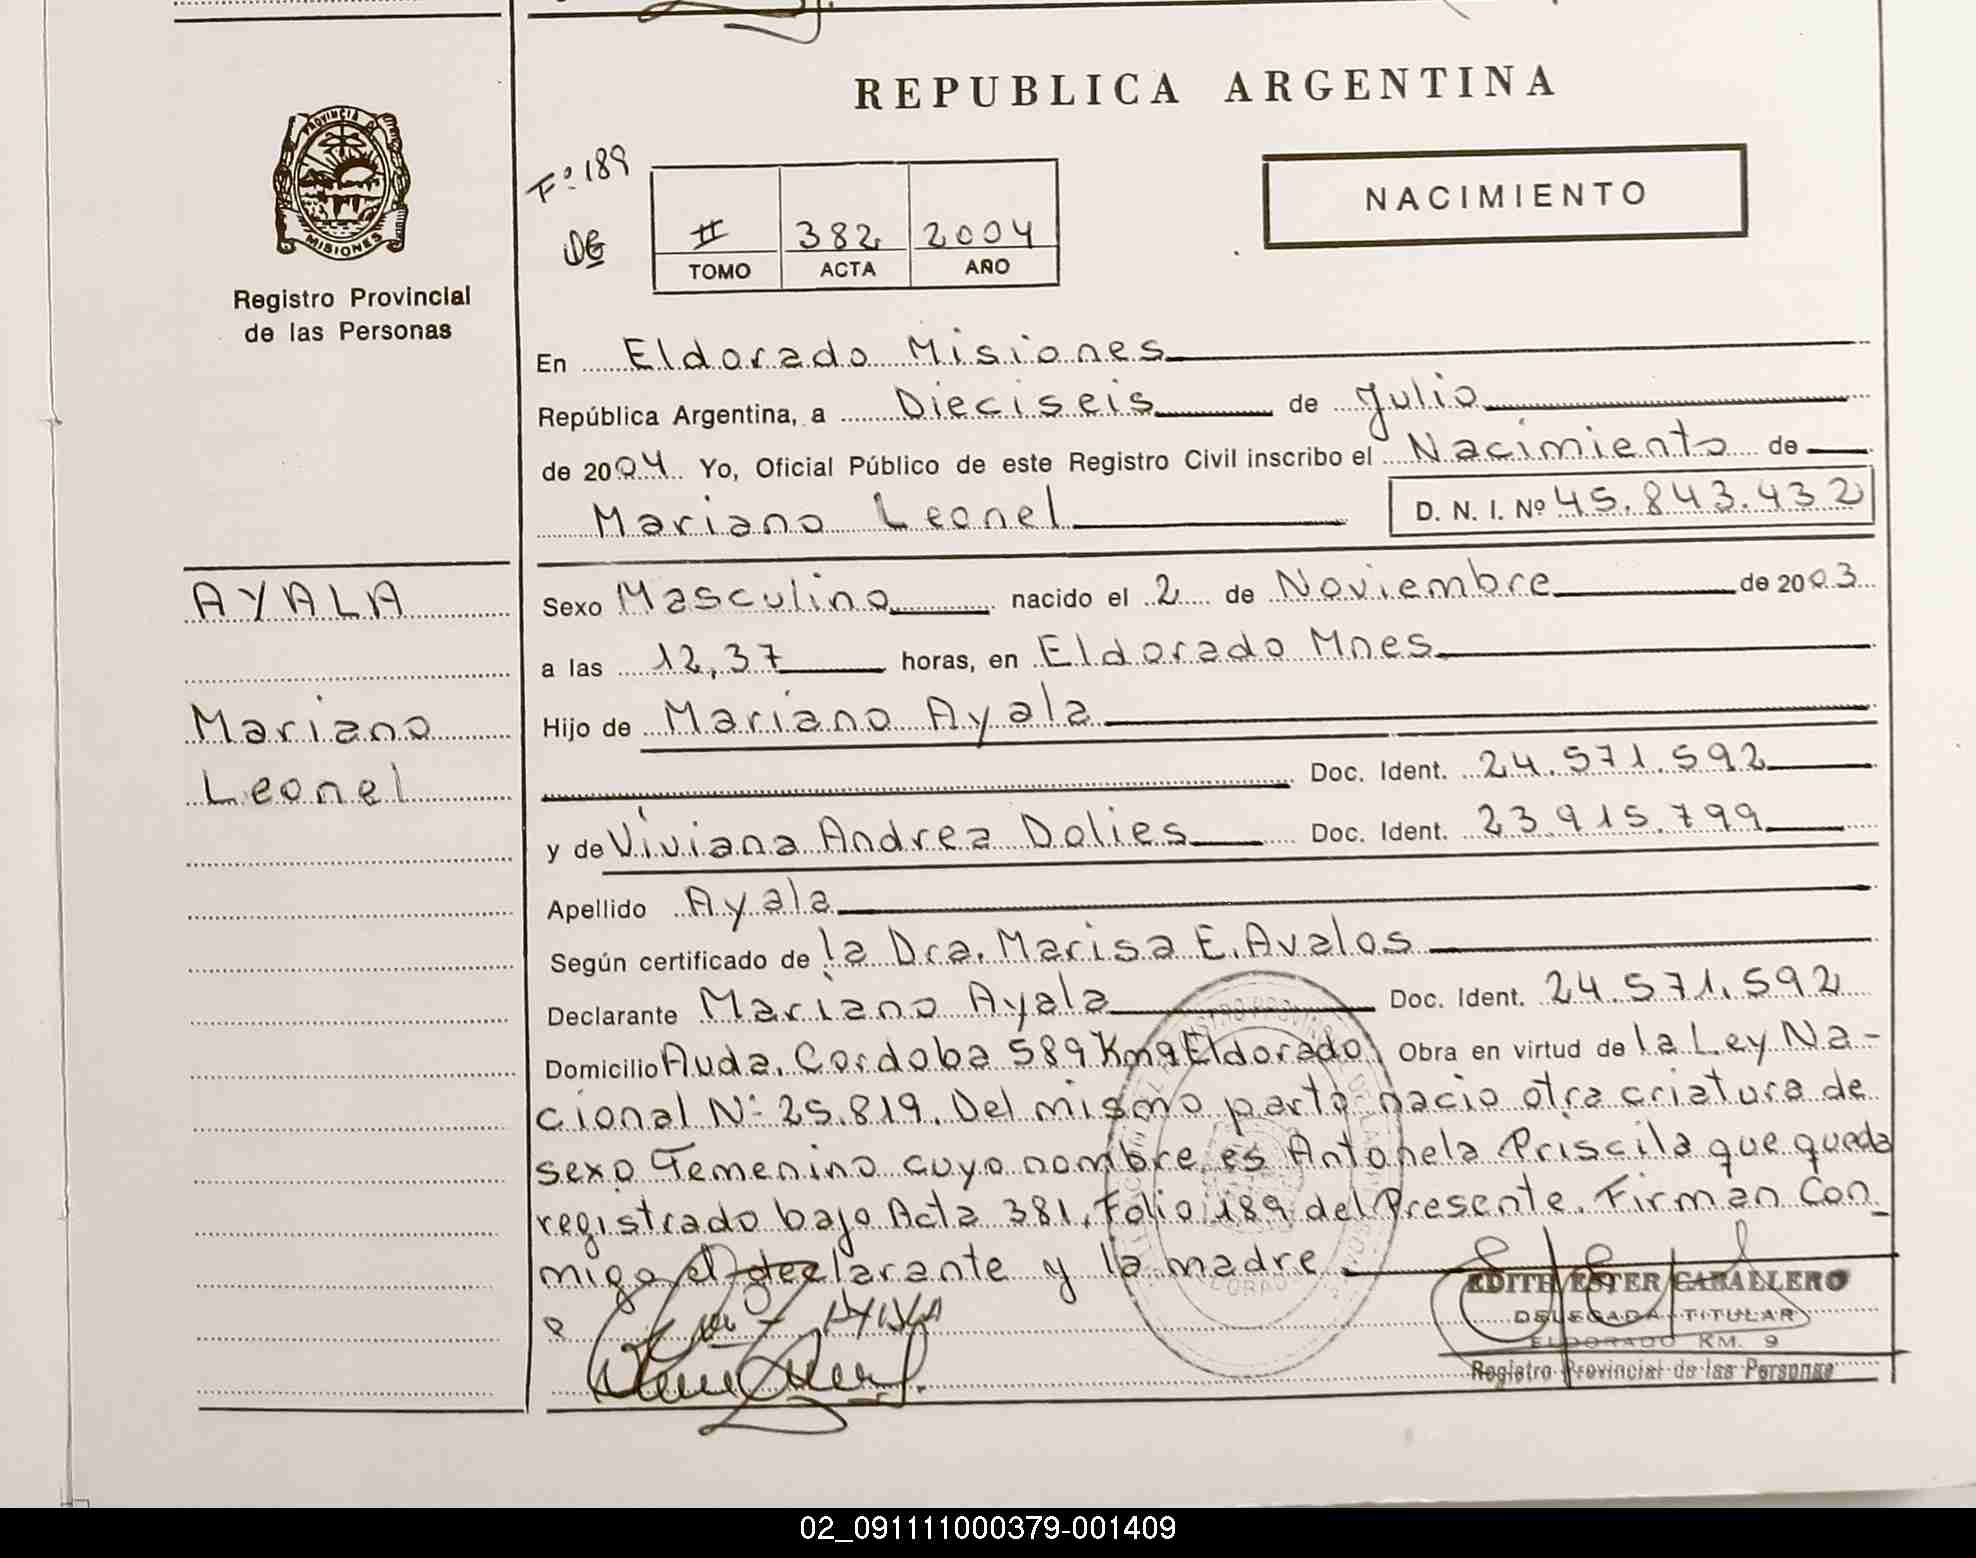 REPUBLICA ARGENTINA
PROVINCIA DE
MISIONES
Registro Provincial
de las Personas
Fº 189
II 382 2004
TOMO ACTA AÑO
NACIMIENTO
En Eldorado Misiones
República Argentina, a Dieciseis de Julio
de 2004 Yo, Oficial Público de este Registro Civil inscribo el Nacimiento de
Mariano Leonel D. N. I. Nº 45.843.432
AYALA
Mariano
Leonel
Sexo Masculino nacido el 2 de Noviembre de 2003
a las 12,37 horas, en Eldorado Mnes
Hijo de Mariano Ayala
Doc. Ident. 24.571.592
y de Viviana Andrea Dolies Doc. Ident. 23.915.799
Apellido Ayala
Según certificado de la Dra. Marisa E. Avalos
Declarante Mariano Ayala Doc. Ident. 24.571.592
Domicilio Avda. Cordoba 589 Km9 Eldorado Obra en virtud de la Ley Na-
cional Nº 25.819. Del mismo parto nacio otra criatura de
sexo Femenino cuyo nombre es Antonela Priscila que queda
registrado bajo Acta 381, Folio 189 del Presente. Firman Con_
migo el declarante y la madre
EDITH ESTER CABALLERO
DELEGADA TITULAR
ELDORADO KM. 9
Registro Provincial de las Personas
02_091111000379-001409